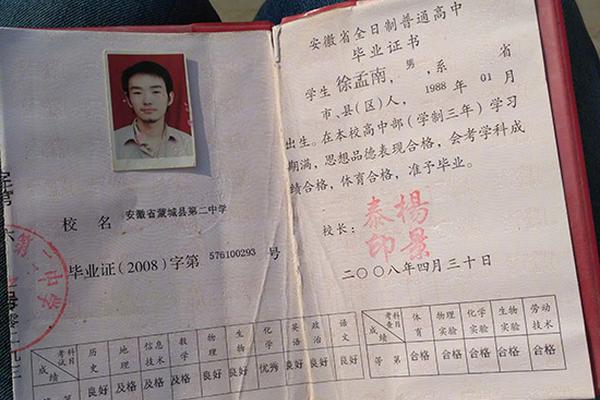 校名 安徽省蒙城县第二中学
毕业证(2008)字第 576100293 号
第二中学
考试科目 历史 地理 信息技术 数学 物理 生物 化学 英语 政治 语文
成绩 良好 及格 及格 及格 良好 良好 优秀 良好 良好 良好
安徽省全日制普通高中
毕业证书
学生 徐孟南,男,系 省
市、县(区)人,1988年01月
出生。在本校高中部(学制三年)学习
期满,思想品德表现合格,会考学科成
绩合格,体育合格,准予毕业。
校长: 杨景泰印
二〇〇八年四月三十日
考查科目 体育 物理实验 化学实验 生物实验 劳动技术
等第 合格 合格 合格 合格 合格